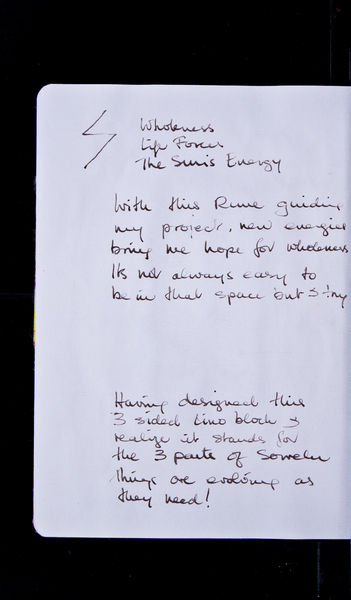 Wholeness
Life Forces
The Sun's Energy
With this Rune guiding
my project, new energies
bring me hope for wholeness
Its not always easy to
be in that space but I try
Having designed this
3 sided Lino block I
realize it stands for
the 3 parts of Sowelu
Things are evolving as
they need!